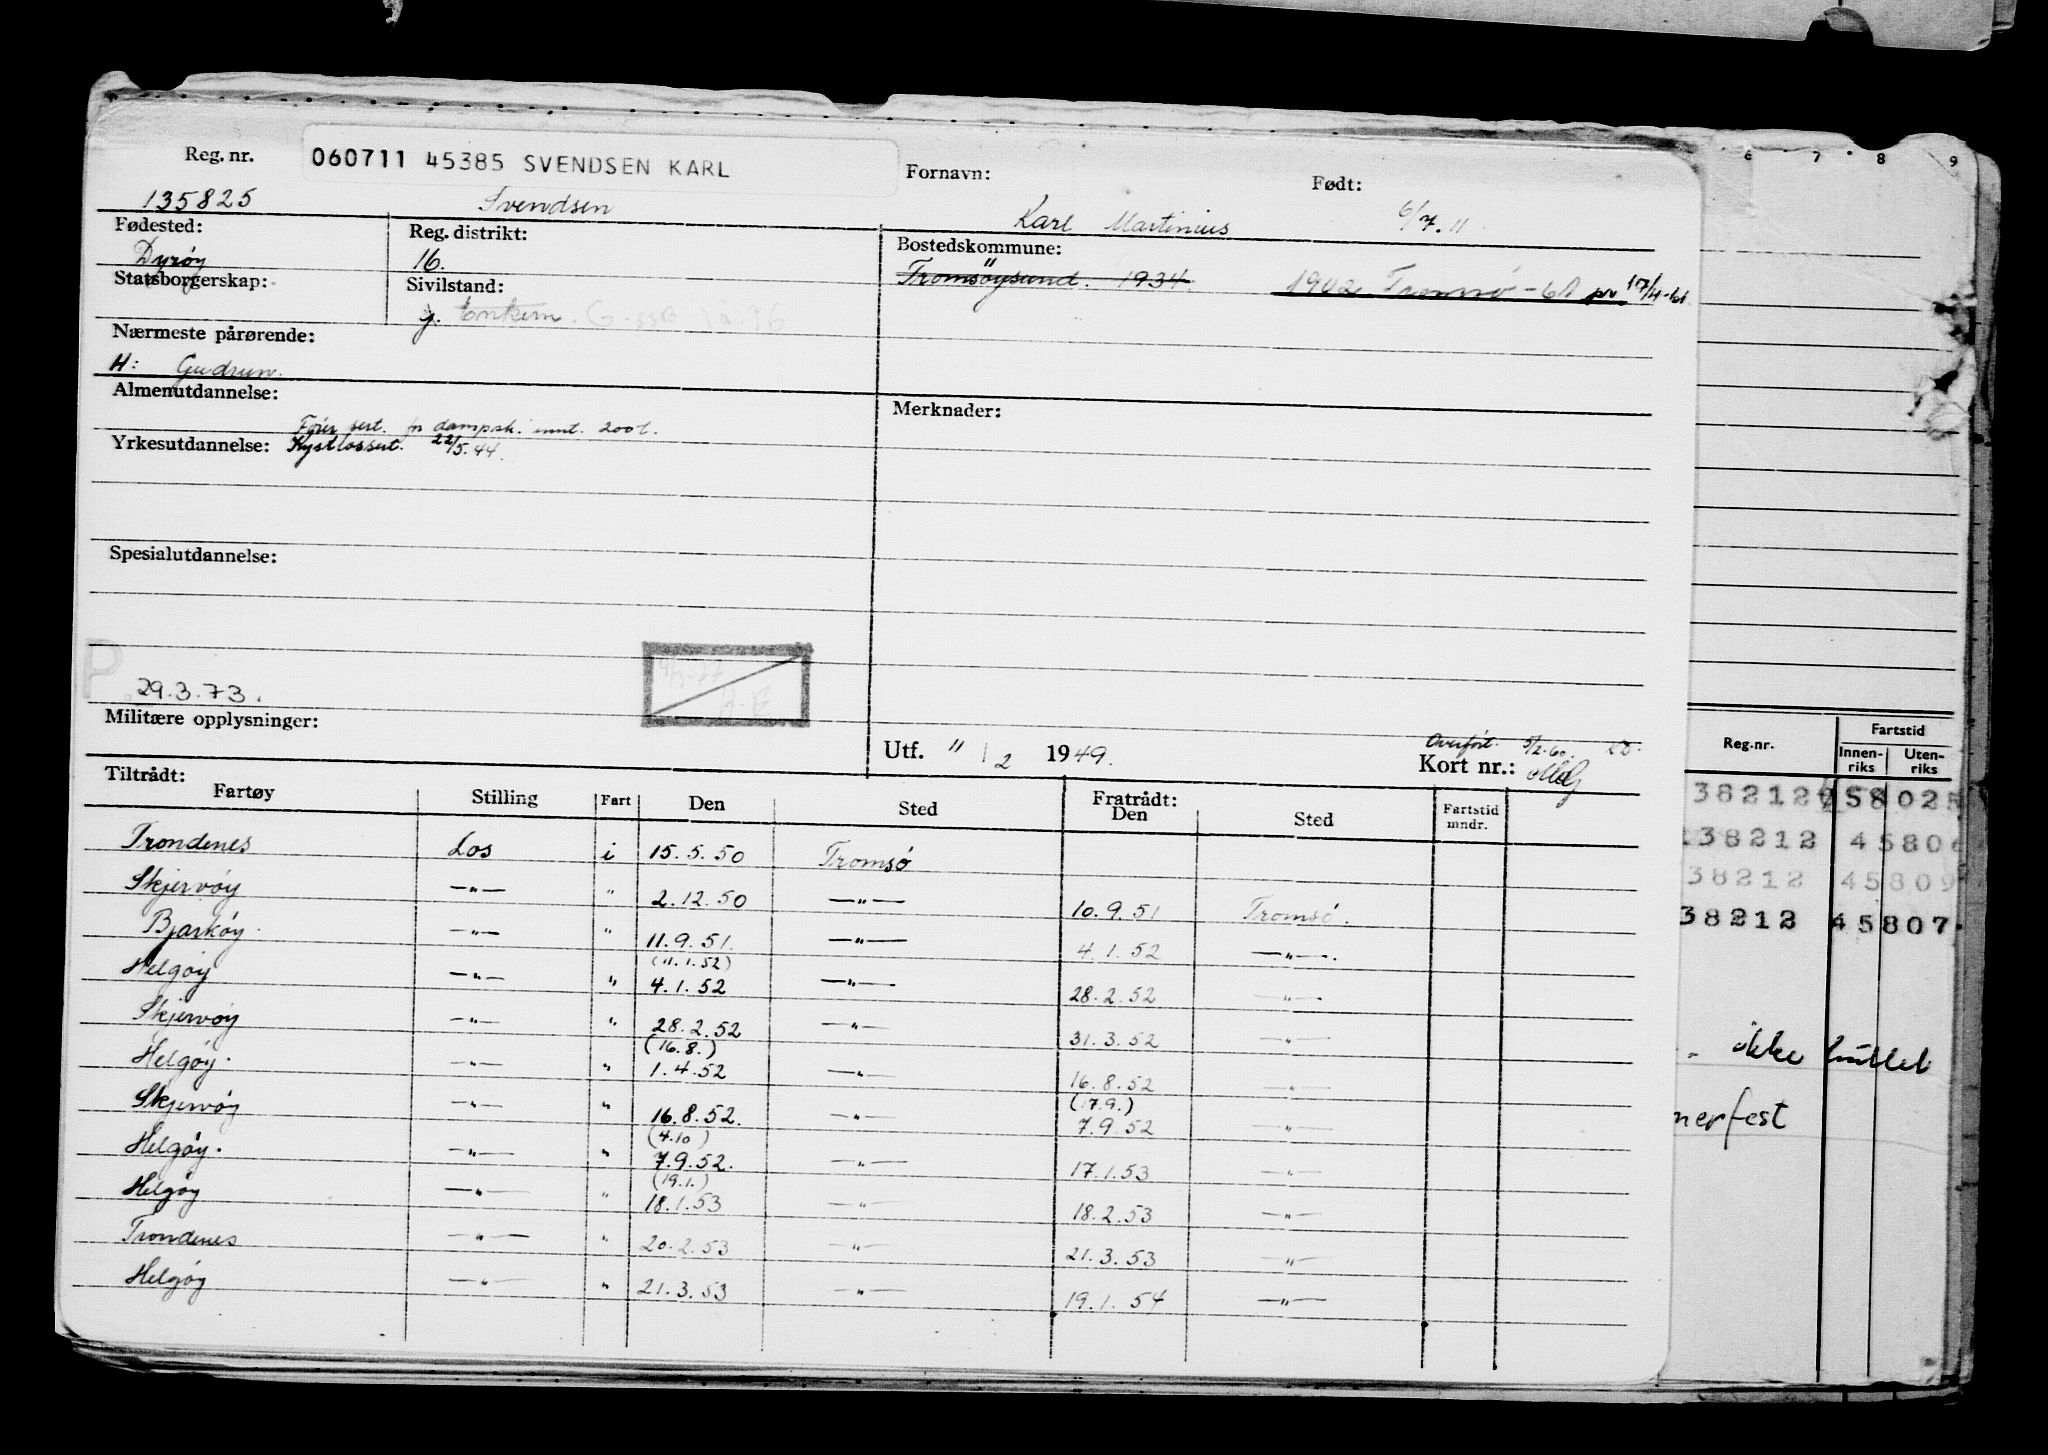 6 7 8 9
Reg. nr. 060711 45385 SVENDSEN KARL Fornavn: Født:
135825 Svendsen Karl Martinius 6/7.11
Fødested: Reg. distrikt: Bostedskommune:
Dyrøy 16. Tromsöysund. 1934. 1902 Tromsø - 61 pr 17/4-61
Statsborgerskap: Sivilstand:
g. Enkem.
Nærmeste pårørende:
H: Gudrun.
Almenutdannelse: Merknader:
Fører sert. for dampsk. innt. 200 t.
Yrkesutdannelse: Kystlossert. 22/5.44.
Spesialutdannelse:
P.
29.3.73.
Militære opplysninger:
Utf. 11/2 1949. Overført. 5/2.60.
Kort nr.:
Tiltrådt: Fratrådt:
Fartøy Stilling Fart Den Sted Den Sted Fartstid mndr.
Trondenes Los i 15.5.50 Tromsø
Skjervøy —"— " 2.12.50 —"— 10.9.51 Tromsø.
Bjarkøy. —"— " 11.9.51. —"— 4.1.52 —"—.
(11.1.52)
Helgøy —"— " 4.1.52 —"— 28.2.52 —"—
Skjervøy —"— " 28.2.52 —"— 31.3.52 —"—
(16.8.)
Helgøy. —"— " 1.4.52 —"— 16.8.52 —"—
(17.9.)
Skjervøy —"— " 16.8.52. —"— 7.9.52 —"—
(4.10)
Helgøy. —"— " 7.9.52. —"— 17.1.53 —"—
(19.1.)
Helgøy —"— " 18.1.53 —"— 18.2.53 —"—
Trondenes —"— " 20.2.53 —"— 21.3.53 —"—
Helgøy —"— " 21.3.53 —"— 19.1.54 —"—
Reg.nr. Fartstid
Innen-riks Uten-riks
38212 58025
138212 4580
38212 45809
38212 45807
ikke hullet
merfest